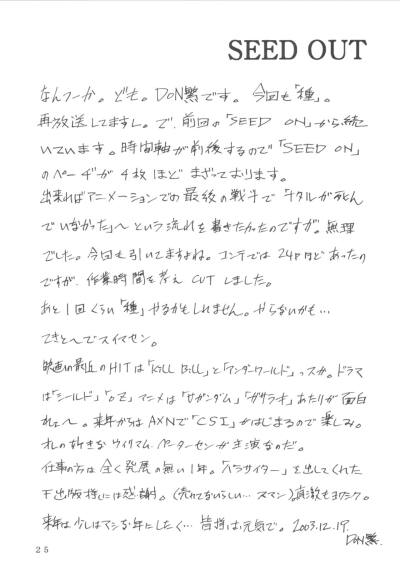 SEED OUT
なんつーか。ども。DON繁です。今回も「種」。
再放送してますし。で、前回の「SEED ON」から続
いています。時間軸が前後するので「SEED ON」
のページが4枚ほどまざっております。
出来ればアニメーションでの最後の戦斗で「ナタルが死ん
でいなかった」〜という流れを書きたかったのですが。無理
でした。今回も引いてますよね。コンテでは24Pほどあったの
ですが、作業時間を考えCUTしました。
あと1回くらい「種」やるかもしれません。やらないかも…
てきと〜でスイマセン。
映画の最近のHITは「KILL BILL」と「アンダーワールド」っスか。ドラマ
は「シールド」「OZ」アニメは「∀ガンダム」「ガサラキ」あたりが面白
れェ〜。来年からはAXNで「CSI」がはじまるので楽しみ。
オレの好きなウィリアム.ピーターセンが主演なのだ。
仕事の方は全く発展の無い1年。「パラサイター」を出してくれた
出版様には感謝。(売れてないらしい…スマン)
来年は少しはマシな年にしたく…皆様は元気で。2003.12.19.
DON繁.
25